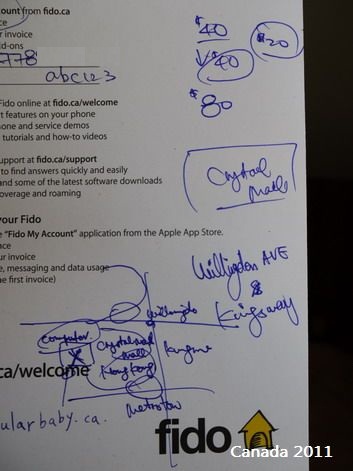 ount from fido.ca
ce
r invoice
dd-ons
778
abc123
Fido online at fido.ca/welcome
t features on your phone
one and service demos
tutorials and how-to videos
upport at fido.ca/support
to find answers quickly and easily
and some of the latest software downloads
overage and roaming
your Fido
e "Fido My Account" application from the Apple App Store.
nce
ur invoice
e, messaging and data usage
he first invoice)
$40
$20
$40
$80
Crystal
Mall
Willigdon AVE
&
Kingsway
Willingdo
Computer
Crystal
mall
Hong Kong
X
Metrotow
ca/welcome
ularbaby.ca.
fido
Canada 2011